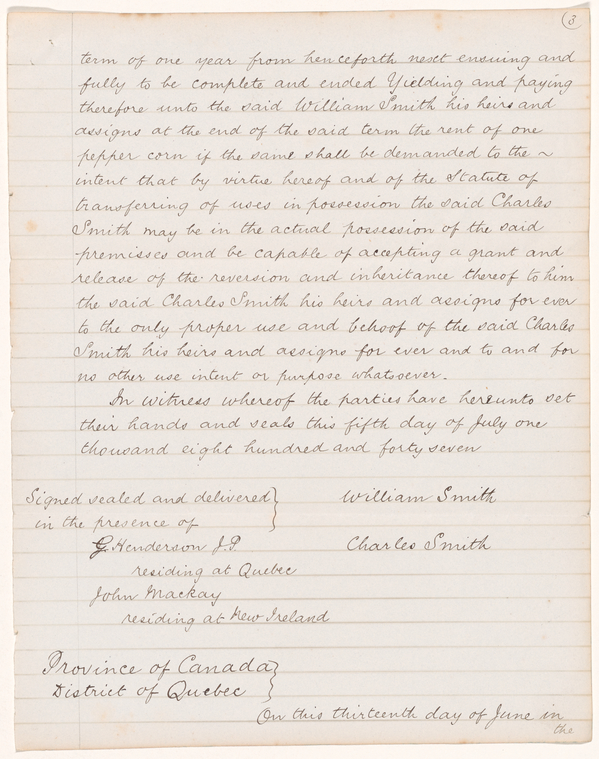 3
term of one year from henceforth next ensuing and
fully to be complete and ended Yielding and paying
therefore unto the said William Smith his heirs and
assigns at the end of the said term the rent of one
pepper corn if the same shall be demanded to the ~
intent that by virtue hereof and of the Statute of
transferring of uses in possession the said Charles
Smith may be in the actual possession of the said
premisses and be capable of accepting a grant and
release of the reversion and inheritance thereof to him
the said Charles Smith his heirs and assigns for ever
to the only proper use and behoof of the said Charles
Smith his heirs and assigns for ever and to and for
no other use intent or purpose whatsoever.
In witness whereof the parties have hereunto set
their hands and seals this fifth day of July one
thousand eight hundred and forty seven
Signed sealed and delivered } William Smith
in the presence of
G. Henderson J.P. Charles Smith
residing at Quebec
John Mackay
residing at New Ireland
Province of Canada }
District of Quebec
On this thirteenth day of June in
the